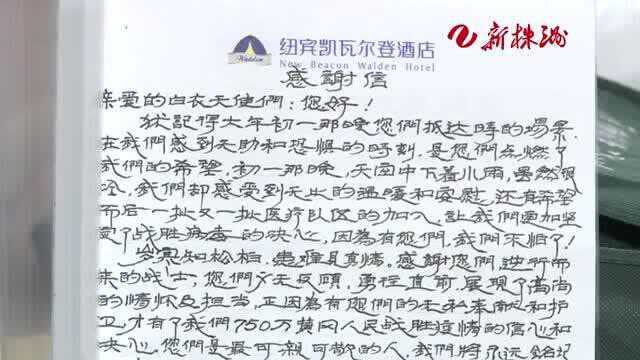 新株洲
纽宾凯瓦尔登酒店
New Beacon Walden Hotel
Walden
感謝信
亲爱的白衣天使們：您好！
犹記得大年初一那晚您們抵达時的場景
在我們感到无助和恐惧的時刻，是您們点燃了
我們的希望，初一那晚，天空中下着小雨，虽然很
冷，我們却感受到无比的温暖和安慰，还有希望
而后一批又一批医疗队伍的加入，让我們更加坚
定了战胜病毒的决心，因為有您們，我們不怕了！
岁寒知松柏，患难見真情。感謝您們，逆行而
来的战士，您們义无反顧，勇往直前，展现了高尚
的情怀及担当，正因為有您們的无私奉献和护
卫，才有了我們750万黄冈人民战胜疫情的信心和
决心，您們是最可親可敬的人，我們將永远銘記